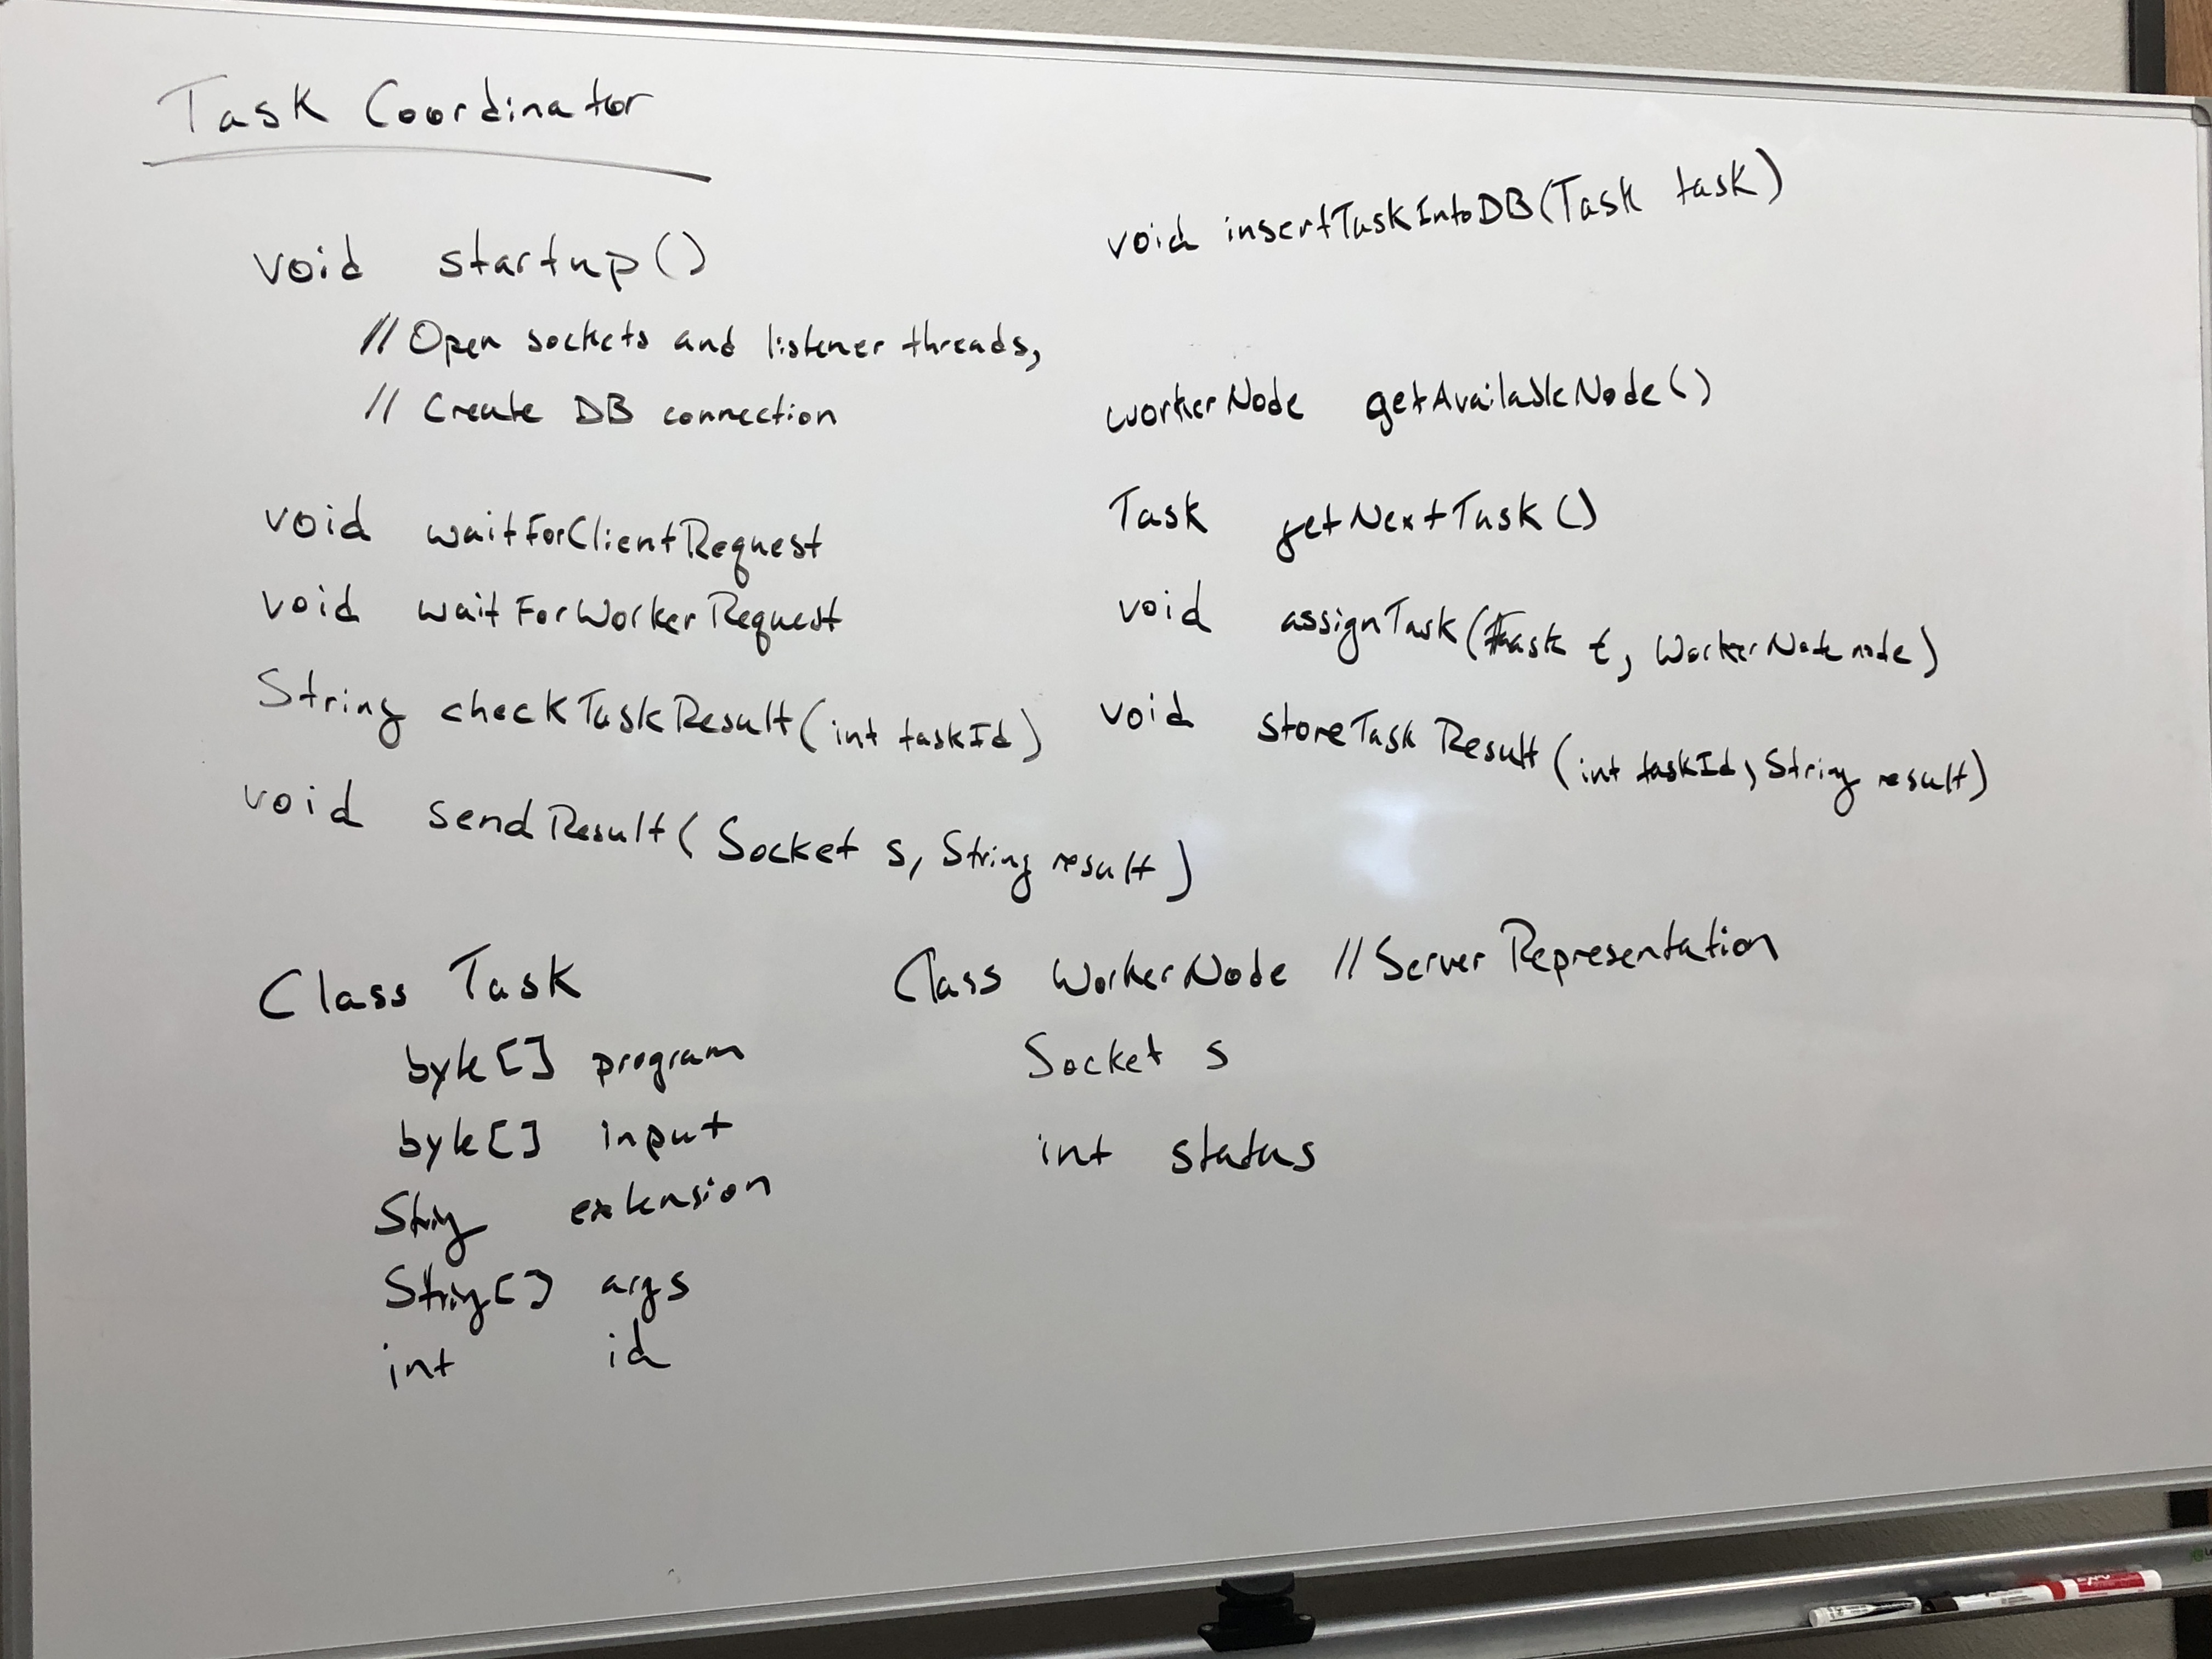 Task Coordinator
void startup()
// Open sockets and listener threads,
// Create DB connection
void waitForClientRequest
void waitForWorkerRequest
String checkTaskResult(int taskId)
void sendResult(Socket s, String result)
void insertTaskIntoDB(Task task)
workerNode getAvailableNode()
Task getNextTask()
void assignTask(Task t, WorkerNode node)
void storeTaskResult(int taskId, String result)
Class Task
byte[] program
byte[] input
String extension
String[] args
int id
Class WorkerNode // Server Representation
Socket s
int status